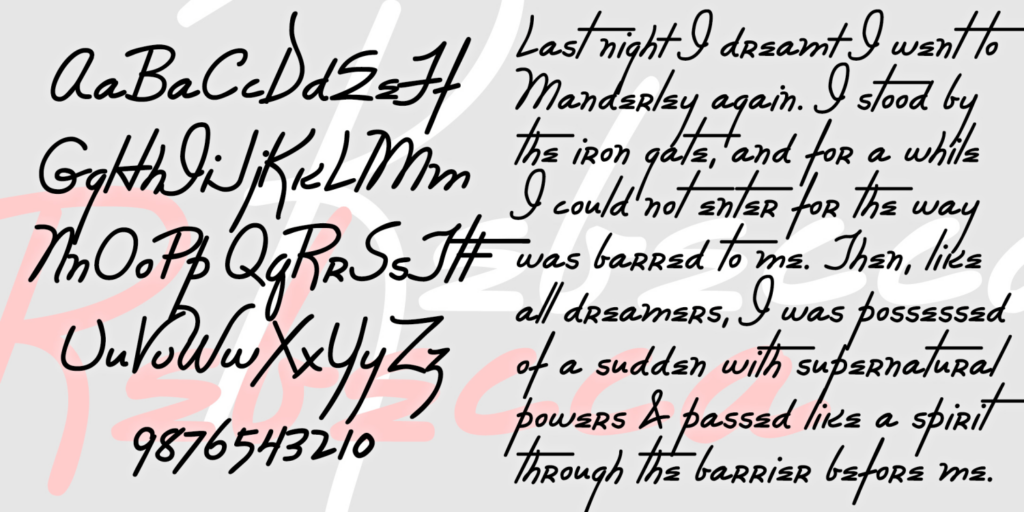 Rebecca
Rebecca
AaBaCcDdEeFf
GgHhIiJjKkLlMm
NnOoPpQqRrSsTt
UuVvWwXxYyZz
9876543210
Last night I dreamt I went to
Manderley again. I stood by
the iron gate, and for a while
I could not enter for the way
was barred to me. Then, like
all dreamers, I was possessed
of a sudden with supernatural
powers & passed like a spirit
through the barrier before me.